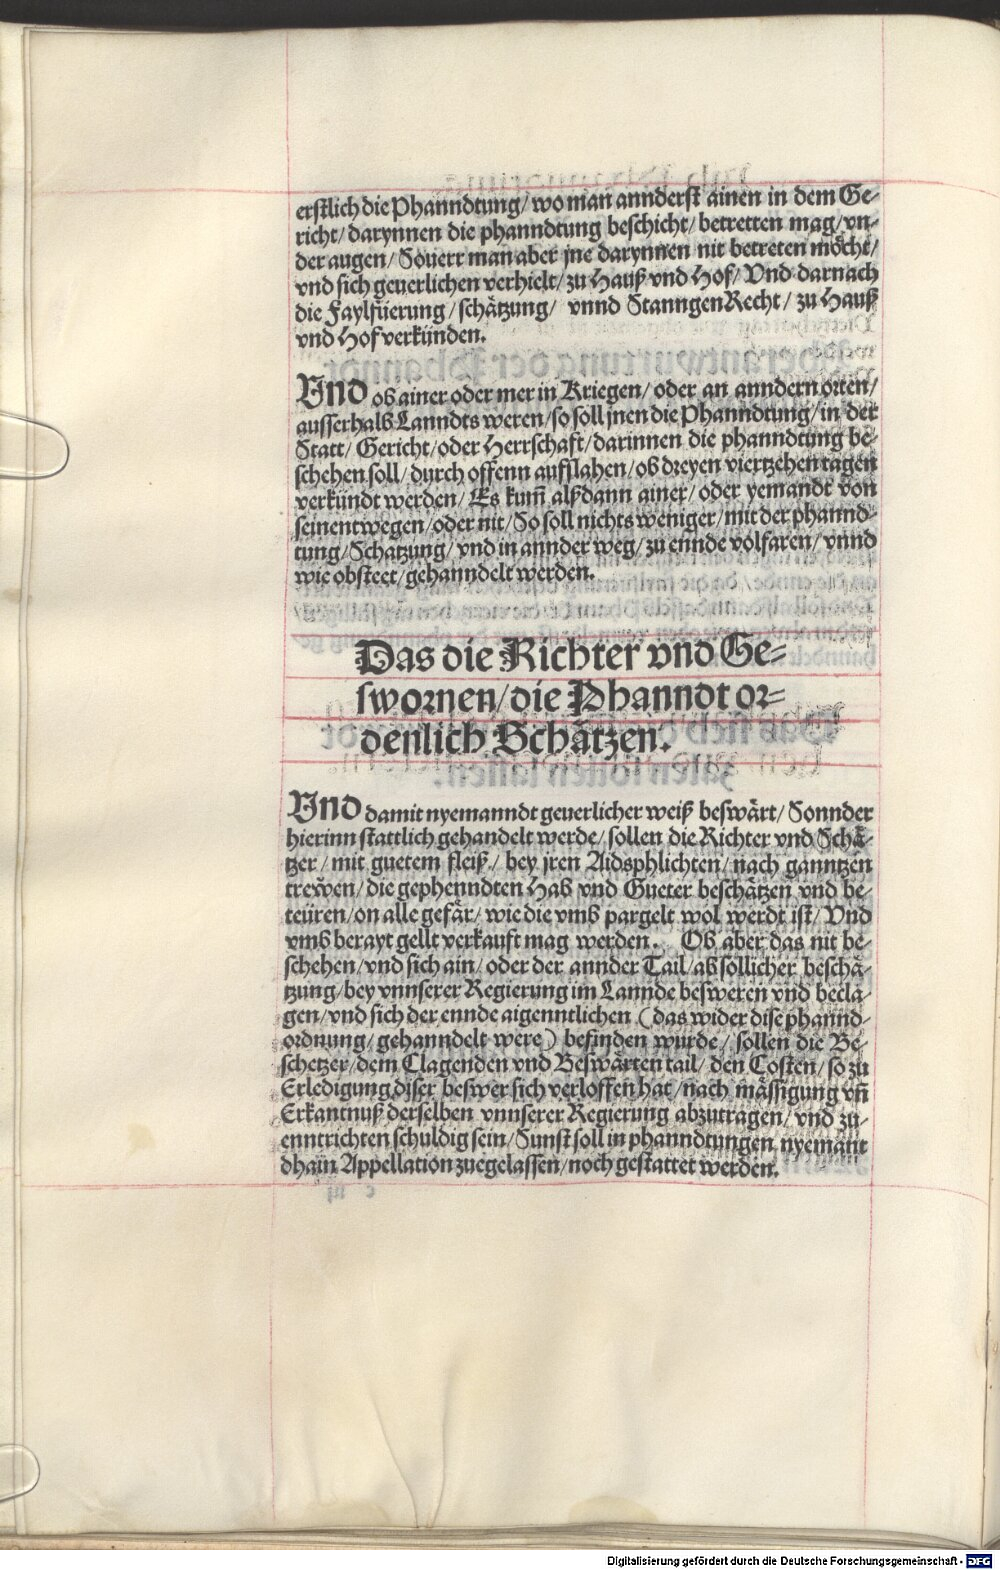 erstlich die Phanndtung/ wo man annderst ainen in dem Ge-
richt/ darynnen die phanndtung beschicht/ betretten mag/ vn-
der augen/ Souerr man aber jne darynnen nit betreten möcht/
vnd sich geuerlichen verhielt/ zu Hauß vnd Hof/ Vnd darnach
die Faylfüerung/ schätzung/ vnnd StanngenRecht/ zu Hauß
vnd Hof verkünden.
Vnd ob ainer oder mer in Kriegen/ oder an anndern orten/
ausserhalb Lanndts weren/ so soll jnen die Phanndtung/ in der
Statt/ Gericht/ oder Herrschaft/ darinnen die phanndtung be-
schehen soll/ durch offenn aufslahen/ ob dreyen viertzehen tagen
verkündt werden/ Es kum̄ alsdann ainer/ oder yemandt von
seinentwegen/ oder nit/ So soll nichts weniger/ mit der phannd-
tung/ Schatzung/ vnd in annder weg/ zu ennde volfaren/ vnnd
wie obsteet/ gehanndelt werden.
Das die Richter vnd Ge-
swornen/ die Phanndt or-
denlich Schätzen.
Vnd damit nyemanndt geuerlicher weiß beswärt/ Sonnder
hierinn stattlich gehandelt werde/ sollen die Richter vnd Schä-
tzer/ mit guetem fleiß/ bey jren Aidsphlichten/ nach ganntzen
trewen/ die gephenndten Hab vnd Gueter beschätzen vnd be-
teüren/ on alle gefär/ wie die vmb pargelt wol werdt ist/ Vnd
vmb berayt gellt verkauft mag werden. Ob aber das nit be-
schehen/ vnd sich ain/ oder der annder Tail/ ab sollicher beschä-
tzung/ bey vnnserer Regierung im Lannde besweren vnd becla-
gen/ vnd sich der ennde aigenntlichen (das wider dise phannd-
ordnung/ gehanndelt were) befinden wurde/ sollen die Be-
schetzer/ dem Clagenden vnd Beswärten tail/ den Costen/ so zu
Erledigung diser beswer sich verloffen hat/ nach mässigung vn̄
Erkantnuß derselben vnnserer Regierung abzutragen/ vnd zu-
enntrichten schuldig sein/ Sunst soll in phanndtungen nyemant
dhain Appellation zuegelassen/ noch gestattet werden.
Digitalisierung gefördert durch die Deutsche Forschungsgemeinschaft - DFG